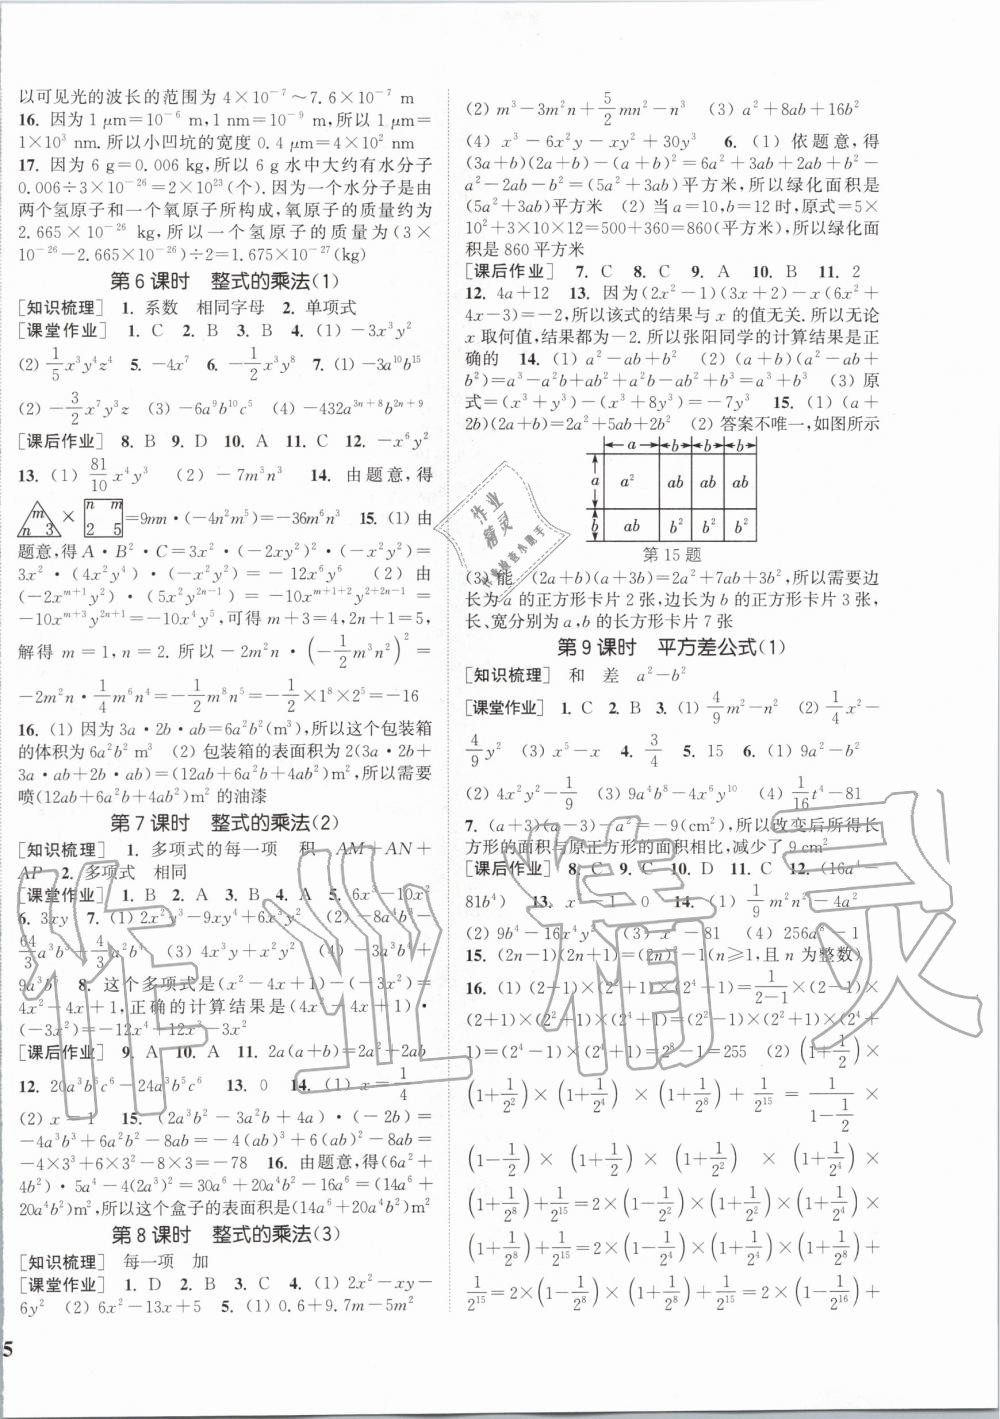 以可见光的波长的范围为 4×10⁻⁷～7.6×10⁻⁷ m
16. 因为 1 μm=10⁻⁶ m,1 nm=10⁻⁹ m,所以 1 μm=
1×10³ nm.所以小凹坑的宽度 0.4 μm=4×10² nm
17. 因为 6 g=0.006 kg,所以 6 g 水中大约有水分子
0.006÷3×10⁻²⁶=2×10²³(个).因为一个水分子是由
两个氢原子和一个氧原子所构成,氧原子的质量约为
2.665×10⁻²⁶ kg,所以一个氢原子的质量为(3×
10⁻²⁶-2.665×10⁻²⁶)÷2=1.675×10⁻²⁷(kg)
第 6 课时 整式的乘法(1)
[知识梳理] 1. 系数 相同字母 2. 单项式
[课堂作业] 1. C 2. B 3. B 4. (1) -3x³y²
(2) 1/5 x³y⁴z⁴ 5. -4x⁷ 6. -1/2 x³y⁸ 7. (1) -3a¹⁰b¹⁵
(2) -3/2 x⁷y³z (3) -6a⁹b¹⁰c⁵ (4) -432a³ⁿ⁺⁸b²ⁿ⁺⁹
[课后作业] 8. B 9. D 10. A 11. C 12. -x⁶y²
13. (1) 81/10 x⁴y³ (2) -7m³n³ 14. 由题意,得
m n 3 × n m 2 5 =9mn·(-4n²m⁵)=-36m⁶n³ 15. (1) 由
题意,得 A·B²·C=3x²·(-2xy²)²·(-x²y²)=
3x²·(4x²y⁴)·(-x²y²)=-12x⁶y⁶ (2) 由
(-2xᵐ⁺¹y²)·(5x²y²ⁿ⁻¹)=-10xᵐ⁺¹⁺²y²⁺²ⁿ⁻¹=
-10xᵐ⁺³y²ⁿ⁺¹=-10x⁴y⁵,可得 m+3=4,2n+1=5,
解得 m=1, n=2. 所以 -2m²n·(-1/2 m³n²)²=
-2m²n·1/4 m⁶n⁴=-1/2 m⁸n⁵=-1/2×1⁸×2⁵=-16
16. (1) 因为 3a·2b·ab=6a²b²(m³),所以这个包装箱
的体积为 6a²b² m³ (2) 包装箱的表面积为 2(3a·2b+
3a·ab+2b·ab)=(12ab+6a²b+4ab²)m²,所以需要
喷(12ab+6a²b+4ab²)m² 的油漆
第 7 课时 整式的乘法(2)
[知识梳理] 1. 多项式的每一项 积 AM+AN+
AP 2. 多项式 相同
[课堂作业] 1. B 2. A 3. A 4. A 5. 6x³-10x²
6. 3xy 7. (1) 2x²y³-9xy⁴+6x³y² (2) -8a⁴b²-
64/3 a³b³+4/3 a²b⁴ (3) 4x³y+x²y² (4) -3a³b⁴+
9a³b³ 8. 这个多项式是(x²-4x+1)-(-3x²)=
4x²-4x+1,正确的计算结果是(4x²-4x+1)·
(-3x²)=-12x⁴+12x³-3x²
[课后作业] 9. A 10. A 11. 2a(a+b)=2a²+2ab
12. 20a³b⁵c⁶-24a³b⁵c⁶ 13. 0 14. (1) x=1/4
(2) x=1 15. (2a³b²-3a²b+4a)·(-2b)=
-4a³b³+6a²b²-8ab=-4(ab)³+6(ab)²-8ab=
-4×3³+6×3²-8×3=-78 16. 由题意,得(6a²+
4b²)·5a⁴-4(2a³)²=30a⁶+20a⁴b²-16a⁶=(14a⁶+
20a⁴b²)m²,所以这个盒子的表面积是(14a⁶+20a⁴b²)m²
第 8 课时 整式的乘法(3)
[知识梳理] 每一项 加
[课堂作业] 1. D 2. B 3. C 4. (1) 2x²-xy-
6y² (2) 6x²-13x+5 5. (1) 0.6+9.7m-5m²
5
(2) m³-3m²n+5/2 mn²-n³ (3) a²+8ab+16b²
(4) x³-6x²y-xy²+30y³ 6. (1) 依题意,得
(3a+b)(2a+b)-(a+b)²=6a²+3ab+2ab+b²-
a²-2ab-b²=(5a²+3ab)平方米,所以绿化面积是
(5a²+3ab)平方米 (2) 当 a=10,b=12 时,原式=5×
10²+3×10×12=500+360=860(平方米),所以绿化
面积是 860 平方米
[课后作业] 7. C 8. C 9. A 10. B 11. 2
12. 4a+12 13. 因为(2x²-1)(3x+2)-x(6x²+
4x-3)=-2,所以该式的结果与 x 的值无关.所以无论
x 取何值,结果都为-2.所以张阳同学的计算结果是正
确的 14. (1) a²-ab+b² (2) (a+b)(a²-ab+
b²)=a³-a²b+ab²+a²b-ab²+b³=a³+b³ (3) 原
式=(x³+y³)-(x³+8y³)=-7y³ 15. (1) (a+
2b)(2a+b)=2a²+5ab+2b² (2) 答案不唯一,如图所示
a b b b
a a² ab ab ab
b ab b² b² b²
第 15 题
(3) 能 (2a+b)(a+3b)=2a²+7ab+3b²,所以需要边
长为 a 的正方形卡片 2 张,边长为 b 的正方形卡片 3 张,
长、宽分别为 a,b 的长方形卡片 7 张
第 9 课时 平方差公式(1)
[知识梳理] 和 差 a²-b²
[课堂作业] 1. C 2. B 3. (1) 4/9 m²-n² (2) 1/4 x²-
4/9 y² (3) x⁵-x 4. 3/4 5. 15 6. (1) 9a²-b²
(2) 4x²y²-1/9 (3) 9a⁴b⁸-4x⁶y¹⁰ (4) 1/16 t⁴-81
7. (a+3)(a-3)-a²=-9(cm²),所以改变后所得长
方形的面积与原正方形的面积相比,减少了 9 cm²
[课后作业] 8. C 9. C 10. B 11. C 12. (16a⁴-
81b⁴) 13. x²-1 0 14. (1) 1/9 m²-4a²
(2) 9b⁴-16x⁴y² (3) x⁴-81 (4) 256a⁸-1
15. (2n-1)(2n+1)=(2n)²-1(n≥1,且 n 为整数)
16. (1) (2+1)×(2²+1)×(2⁴+1)=1/(2-1)×(2-1)×
(2+1)×(2²+1)×(2⁴+1)=(2²-1)×(2²+1)×(2⁴+
1)=(2⁴-1)×(2⁴+1)=2⁸-1=255 (2) (1+1/2)×
(1+1/2²)×(1+1/2⁴)×(1+1/2⁸)+1/2¹⁵=1/(1-1/2)×
(1-1/2)×(1+1/2)×(1+1/2²)×(1+1/2⁴)×
(1+1/2⁸)+1/2¹⁵=2×(1-1/2²)×(1+1/2²)×(1+1/2⁴)×
(1+1/2⁸)+1/2¹⁵=2×(1-1/2⁴)×(1+1/2⁴)×(1+1/2⁸)+
1/2¹⁵=2×(1-1/2⁸)×(1+1/2⁸)+1/2¹⁵=2×(1-1/2¹⁶)+
作业精灵
作业精灵